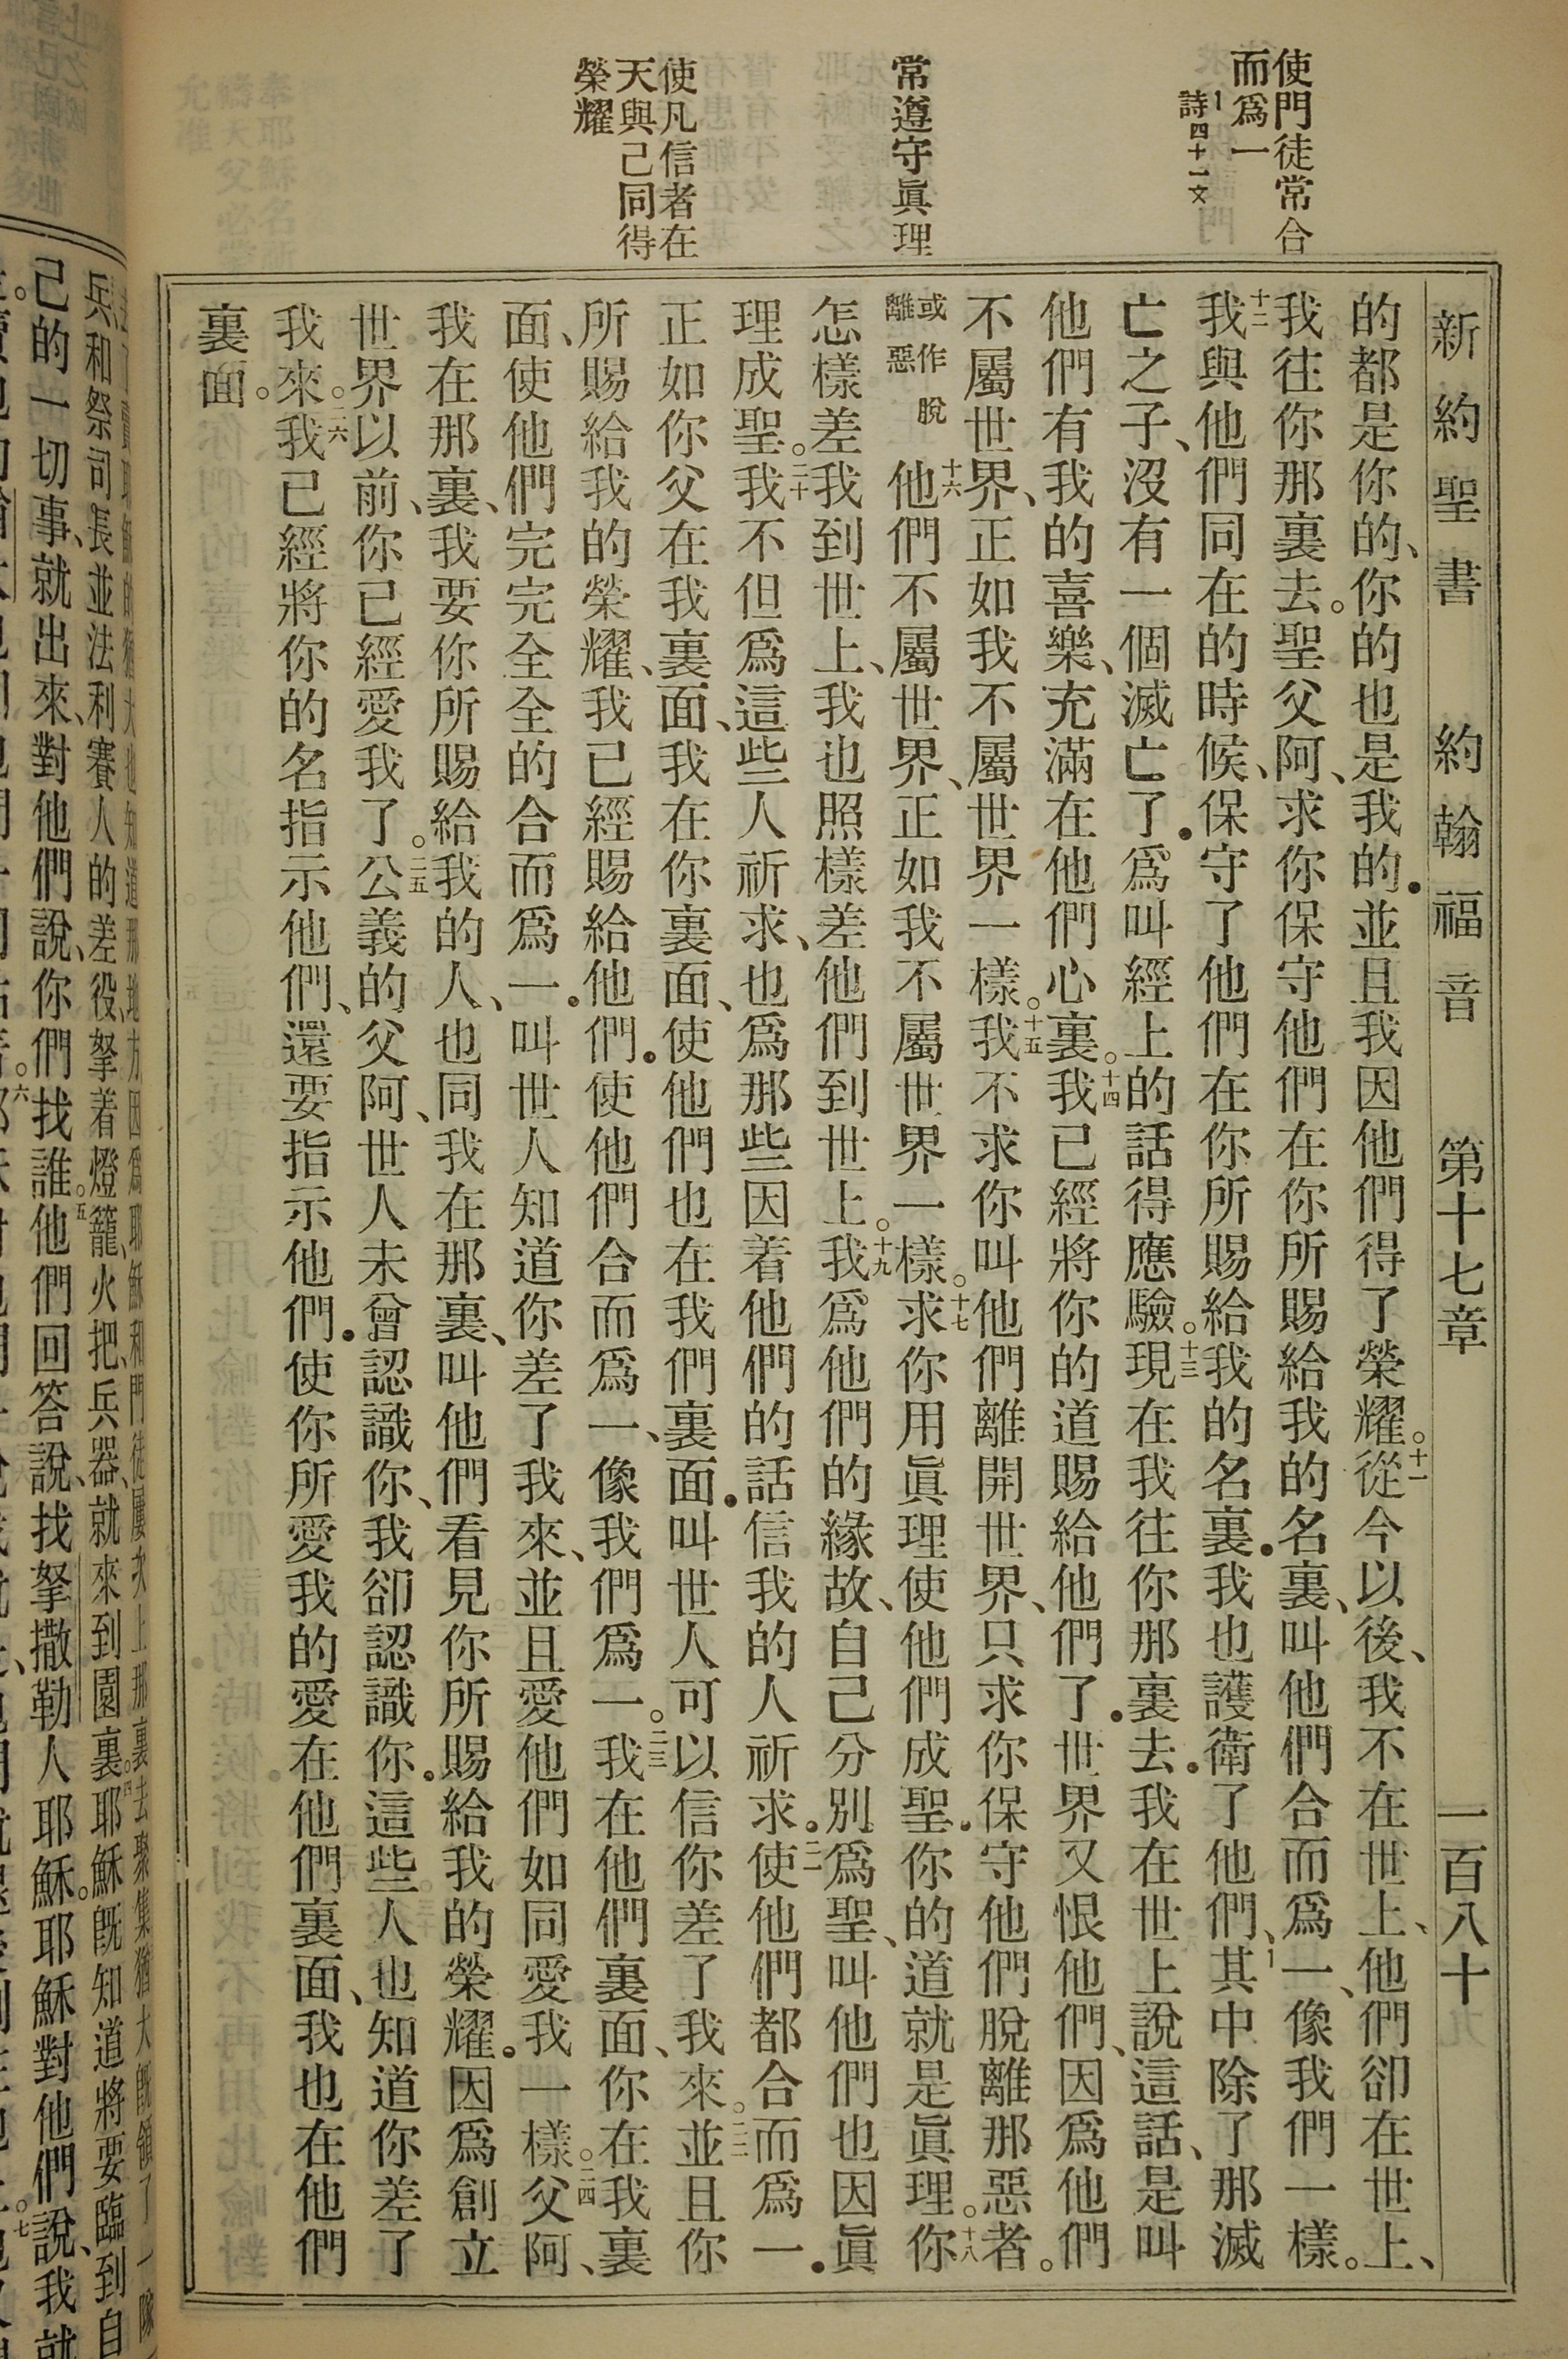 使門徒常合
而爲一
1
詩四十一文
常遵守眞理
使凡信者在
天與己同得
榮耀
新約聖書 約翰福音 第十七章 一百八十
的都是你的、你的也是我的●並且我因他們得了榮耀。十一從今以後、我不在世上、他們卻在世上、
我往你那裏去。聖父阿、求你保守他們在你所賜給我的名裏、叫他們合而爲一、像我們一樣。
十二我與他們同在的時候、保守了他們在你所賜給我的名裏●我也護衛了他們、1其中除了那滅
亡之子、沒有一個滅亡了●爲叫經上的話得應驗。十三現在我往你那裏去●我在世上說這話、是叫
他們有我的喜樂、充滿在他們心裏。十四我已經將你的道賜給他們了●世界又恨他們、因爲他們
不屬世界、正如我不屬世界一樣。十五我不求你叫他們離開世界、只求你保守他們脫離那惡者。
或作脫離惡 十六他們不屬世界、正如我不屬世界一樣。十七求你用眞理使他們成聖●你的道就是眞理。十八你
怎樣差我到世上、我也照樣差他們到世上。十九我爲他們的緣故、自己分別爲聖、叫他們也因眞
理成聖。二十我不但爲這些人祈求、也爲那些因着他們的話信我的人祈求●二一使他們都合而爲一●
正如你父在我裏面、我在你裏面、使他們也在我們裏面●叫世人可以信你差了我來。二二並且你
所賜給我的榮耀、我已經賜給他們●使他們合而爲一、像我們爲一。二三我在他們裏面、你在我裏
面、使他們完完全全的合而爲一●叫世人知道你差了我來、並且愛他們如同愛我一樣。二四父阿、
我在那裏、我要你所賜給我的人、也同我在那裏、叫他們看見你所賜給我的榮耀●因爲創立
世界以前、你已經愛我了。二五公義的父阿、世人未曾認識你、我卻認識你●這些人也知道你差了
我來。二六我已經將你的名指示他們、還要指示他們●使你所愛我的愛在他們裏面、我也在他們
裏面。
知道那地方因爲耶穌和門徒屢次上那裏去聚集猶大旣領了一隊
兵和祭司長並法利賽人的差役、拏着燈籠、火把、兵器、就來到園裏。四耶穌旣知道將要臨到自
己的一切事、就出來、對他們說、你們找誰。五他們回答說、找拏撒勒人耶穌。耶穌對他們說、我就